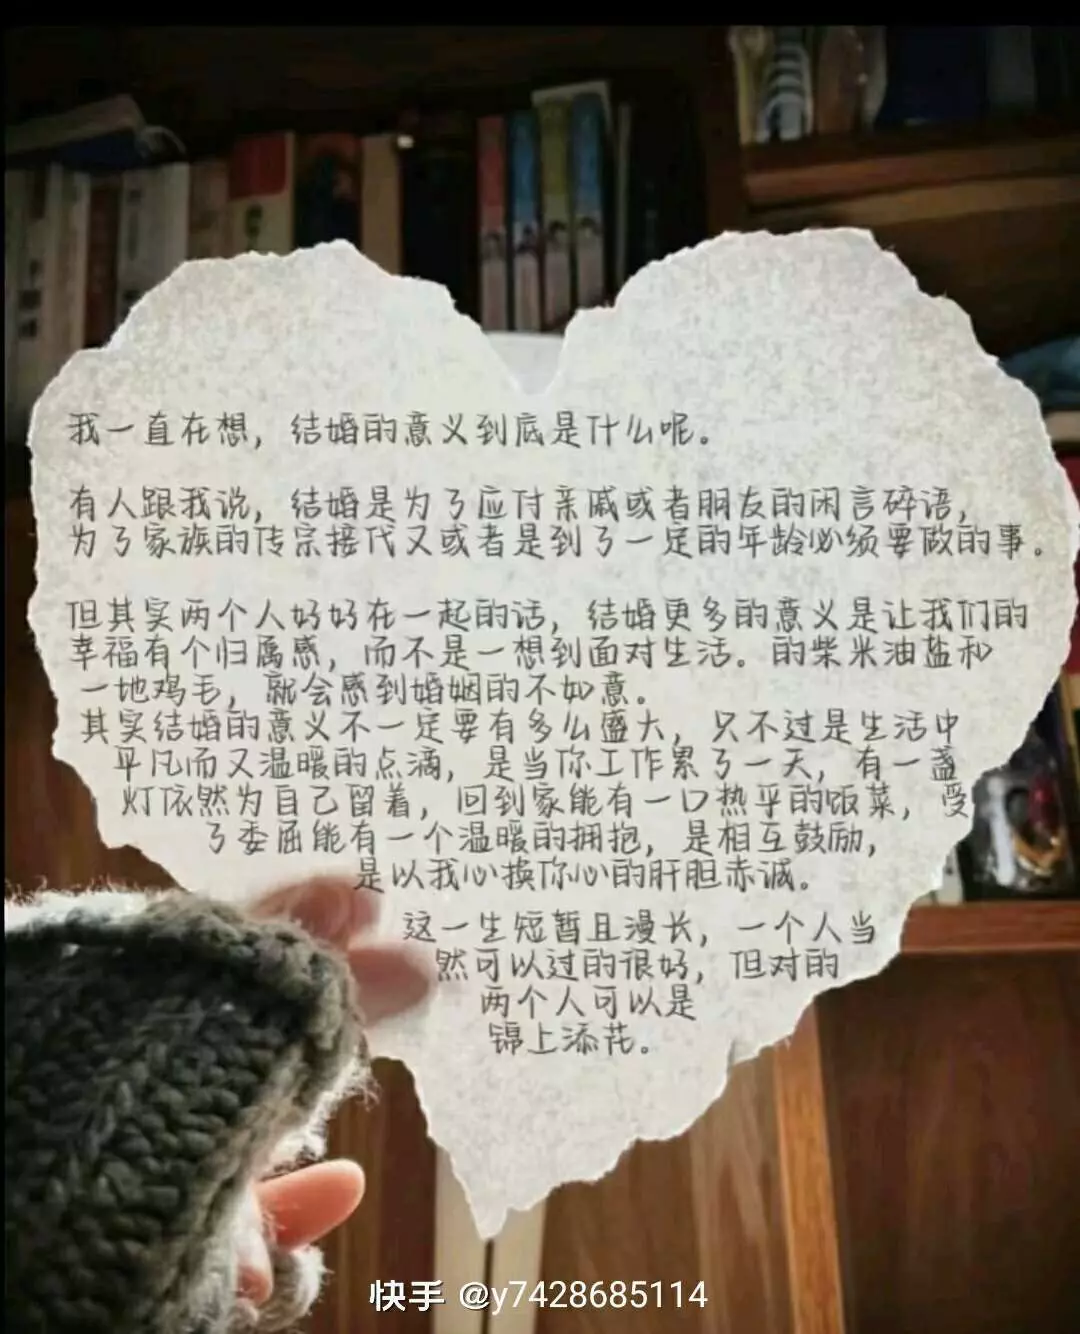 我一直在想，结婚的意义到底是什么呢。
有人跟我说，结婚是为了应付亲戚或者朋友的闲言碎语，
为了家族的传宗接代又或者是到了一定的年龄必须要做的事。
但其实两个人好好在一起的话，结婚更多的意义是让我们的
幸福有个归属感，而不是一想到面对生活。的柴米油盐和
一地鸡毛，就会感到婚姻的不如意。
其实结婚的意义不一定要有多么盛大，只不过是生活中
平凡而又温暖的点滴，是当你工作累了一天，有一盏
灯依然为自己留着，回到家能有一口热乎的饭菜，受
了委屈能有一个温暖的拥抱，是相互鼓励，
是以我心换你心的肝胆赤诚。
这一生短暂且漫长，一个人当
然可以过的很好，但对的
两个人可以是
锦上添花。
快手 @y7428685114